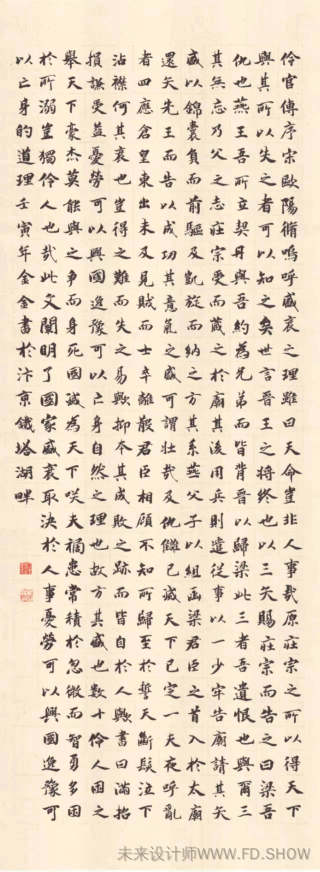 伶官傳序宋歐陽脩嗚呼盛衰之理雖曰天命豈非人事哉原莊宗之所以得天下
與其所以失之者可以知之矣世言晉王之將終也以三矢賜莊宗而告之曰梁吾
仇也燕王吾所立契丹與吾約為兄弟而皆背晉以歸梁此三者吾遺恨也與爾三
其無忘乃父之志莊宗受而藏之於廟其後用兵則遣從事以一少牢告廟請其矢
盛以錦囊負而前驅及凱旋而納之方其系燕父子以組函梁君臣之首入於太廟
還矢先王而告以成功其意氣之盛可謂壯哉及仇讎已滅天下已定一夫夜呼亂
者四應倉皇東出未及見賊而士卒離散君臣相顧不知所歸至於誓天斷髮泣下
沾襟何其衰也豈得之難而失之易歟抑本其成敗之跡而皆自於人歟書曰滿招
損謙受益憂勞可以興國逸豫可以亡身自然之理也故方其盛也數十伶人困之
舉天下豪杰莫能與之爭而身死國滅為天下笑夫禍患常積於忽微而智勇多困
於所溺豈獨伶人也哉此文闡明了國家盛衰取決於人事憂勞可以興國逸豫可
以亡身的道理壬寅年金金書於汴京鐵塔湖畔
未来设计师WWW.FD.SHOW